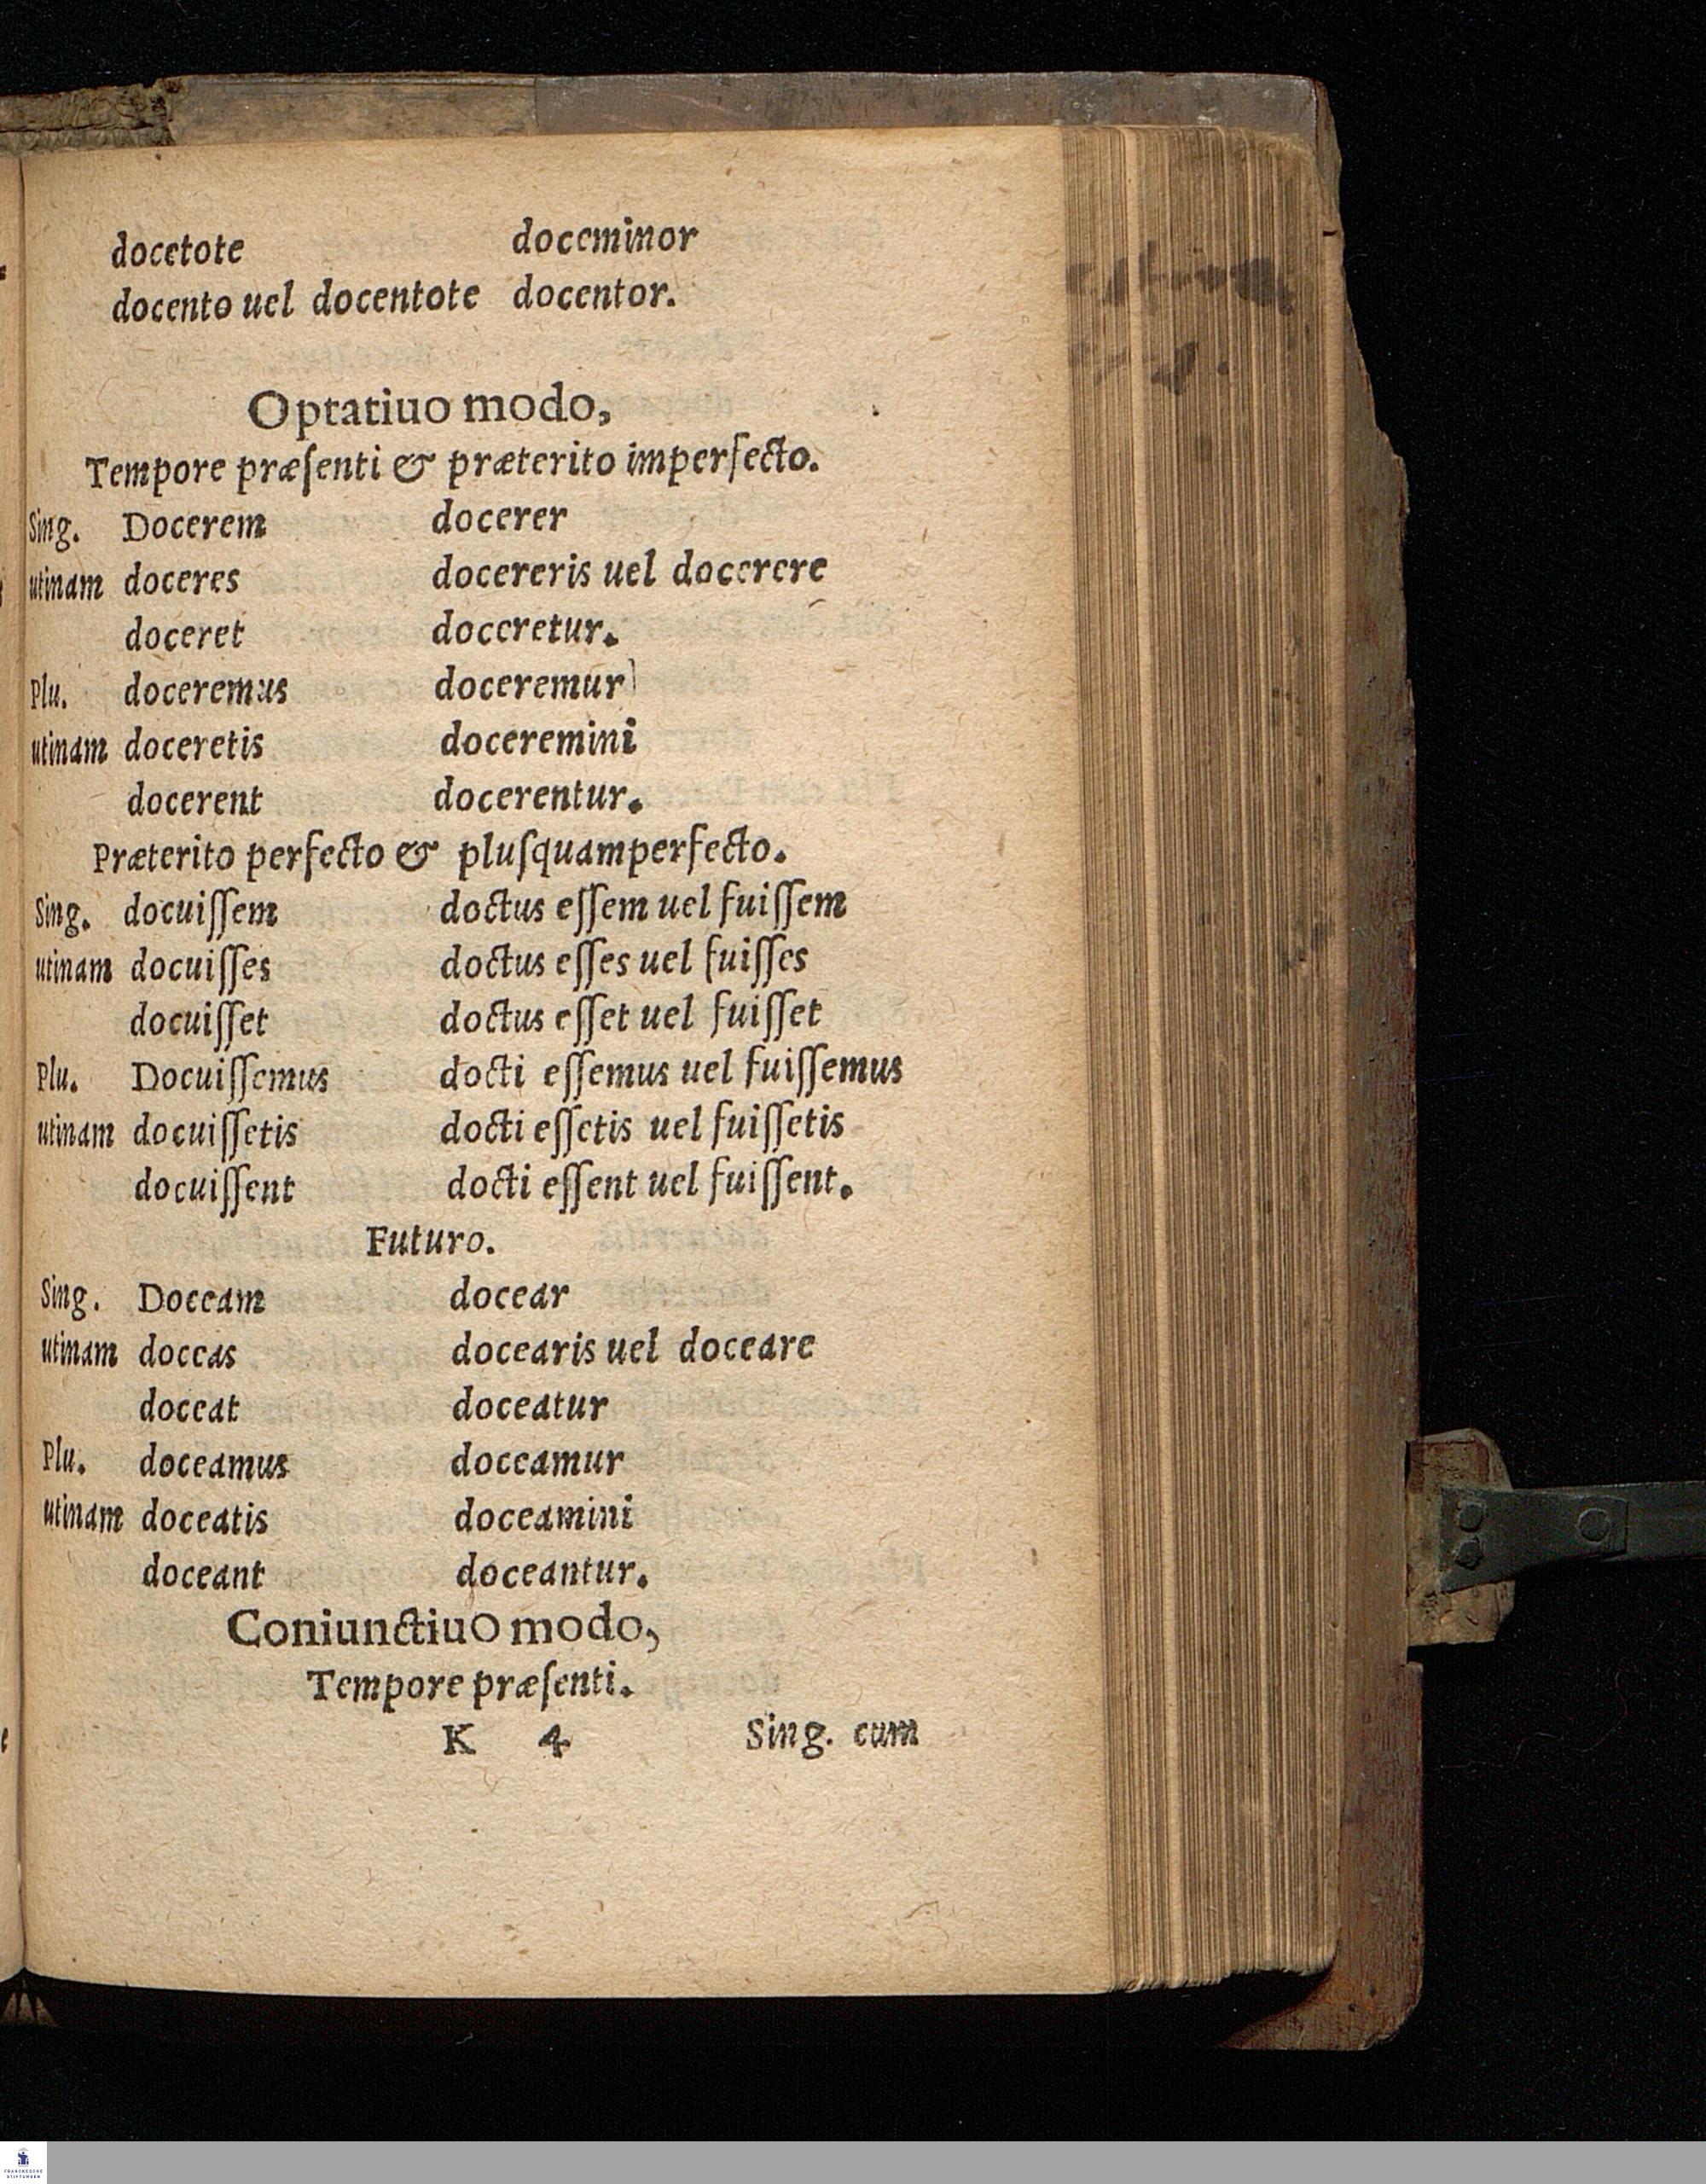 docetote doceminor
docento uel docentote docentor.
Optatiuo modo,
Tempore præſenti & præterito imperfecto.
Sing. Docerem docerer
utinam doceres docereris uel docerere
doceret doceretur.
Plu. doceremus doceremur
utinam doceretis doceremini
docerent docerentur.
Præterito perfecto & pluſquamperfecto.
Sing. docuiſſem doctus eſſem uel fuiſſem
utinam docuiſſes doctus eſſes uel fuiſſes
docuiſſet doctus eſſet uel fuiſſet
Plu. Docuiſſemus docti eſſemus uel fuiſſemus
utinam docuiſſetis docti eſſetis uel fuiſſetis
docuiſſent docti eſſent uel fuiſſent.
Futuro.
Sing. Doceam docear
utinam doceas docearis uel doceare
doceat doceatur
Plu. doceamus doceamur
utinam doceatis doceamini
doceant doceantur.
ConiunctiuO modo,
Tempore præſenti.
K 4 Sing. cum
FRANCKESCHE
STIFTUNGEN